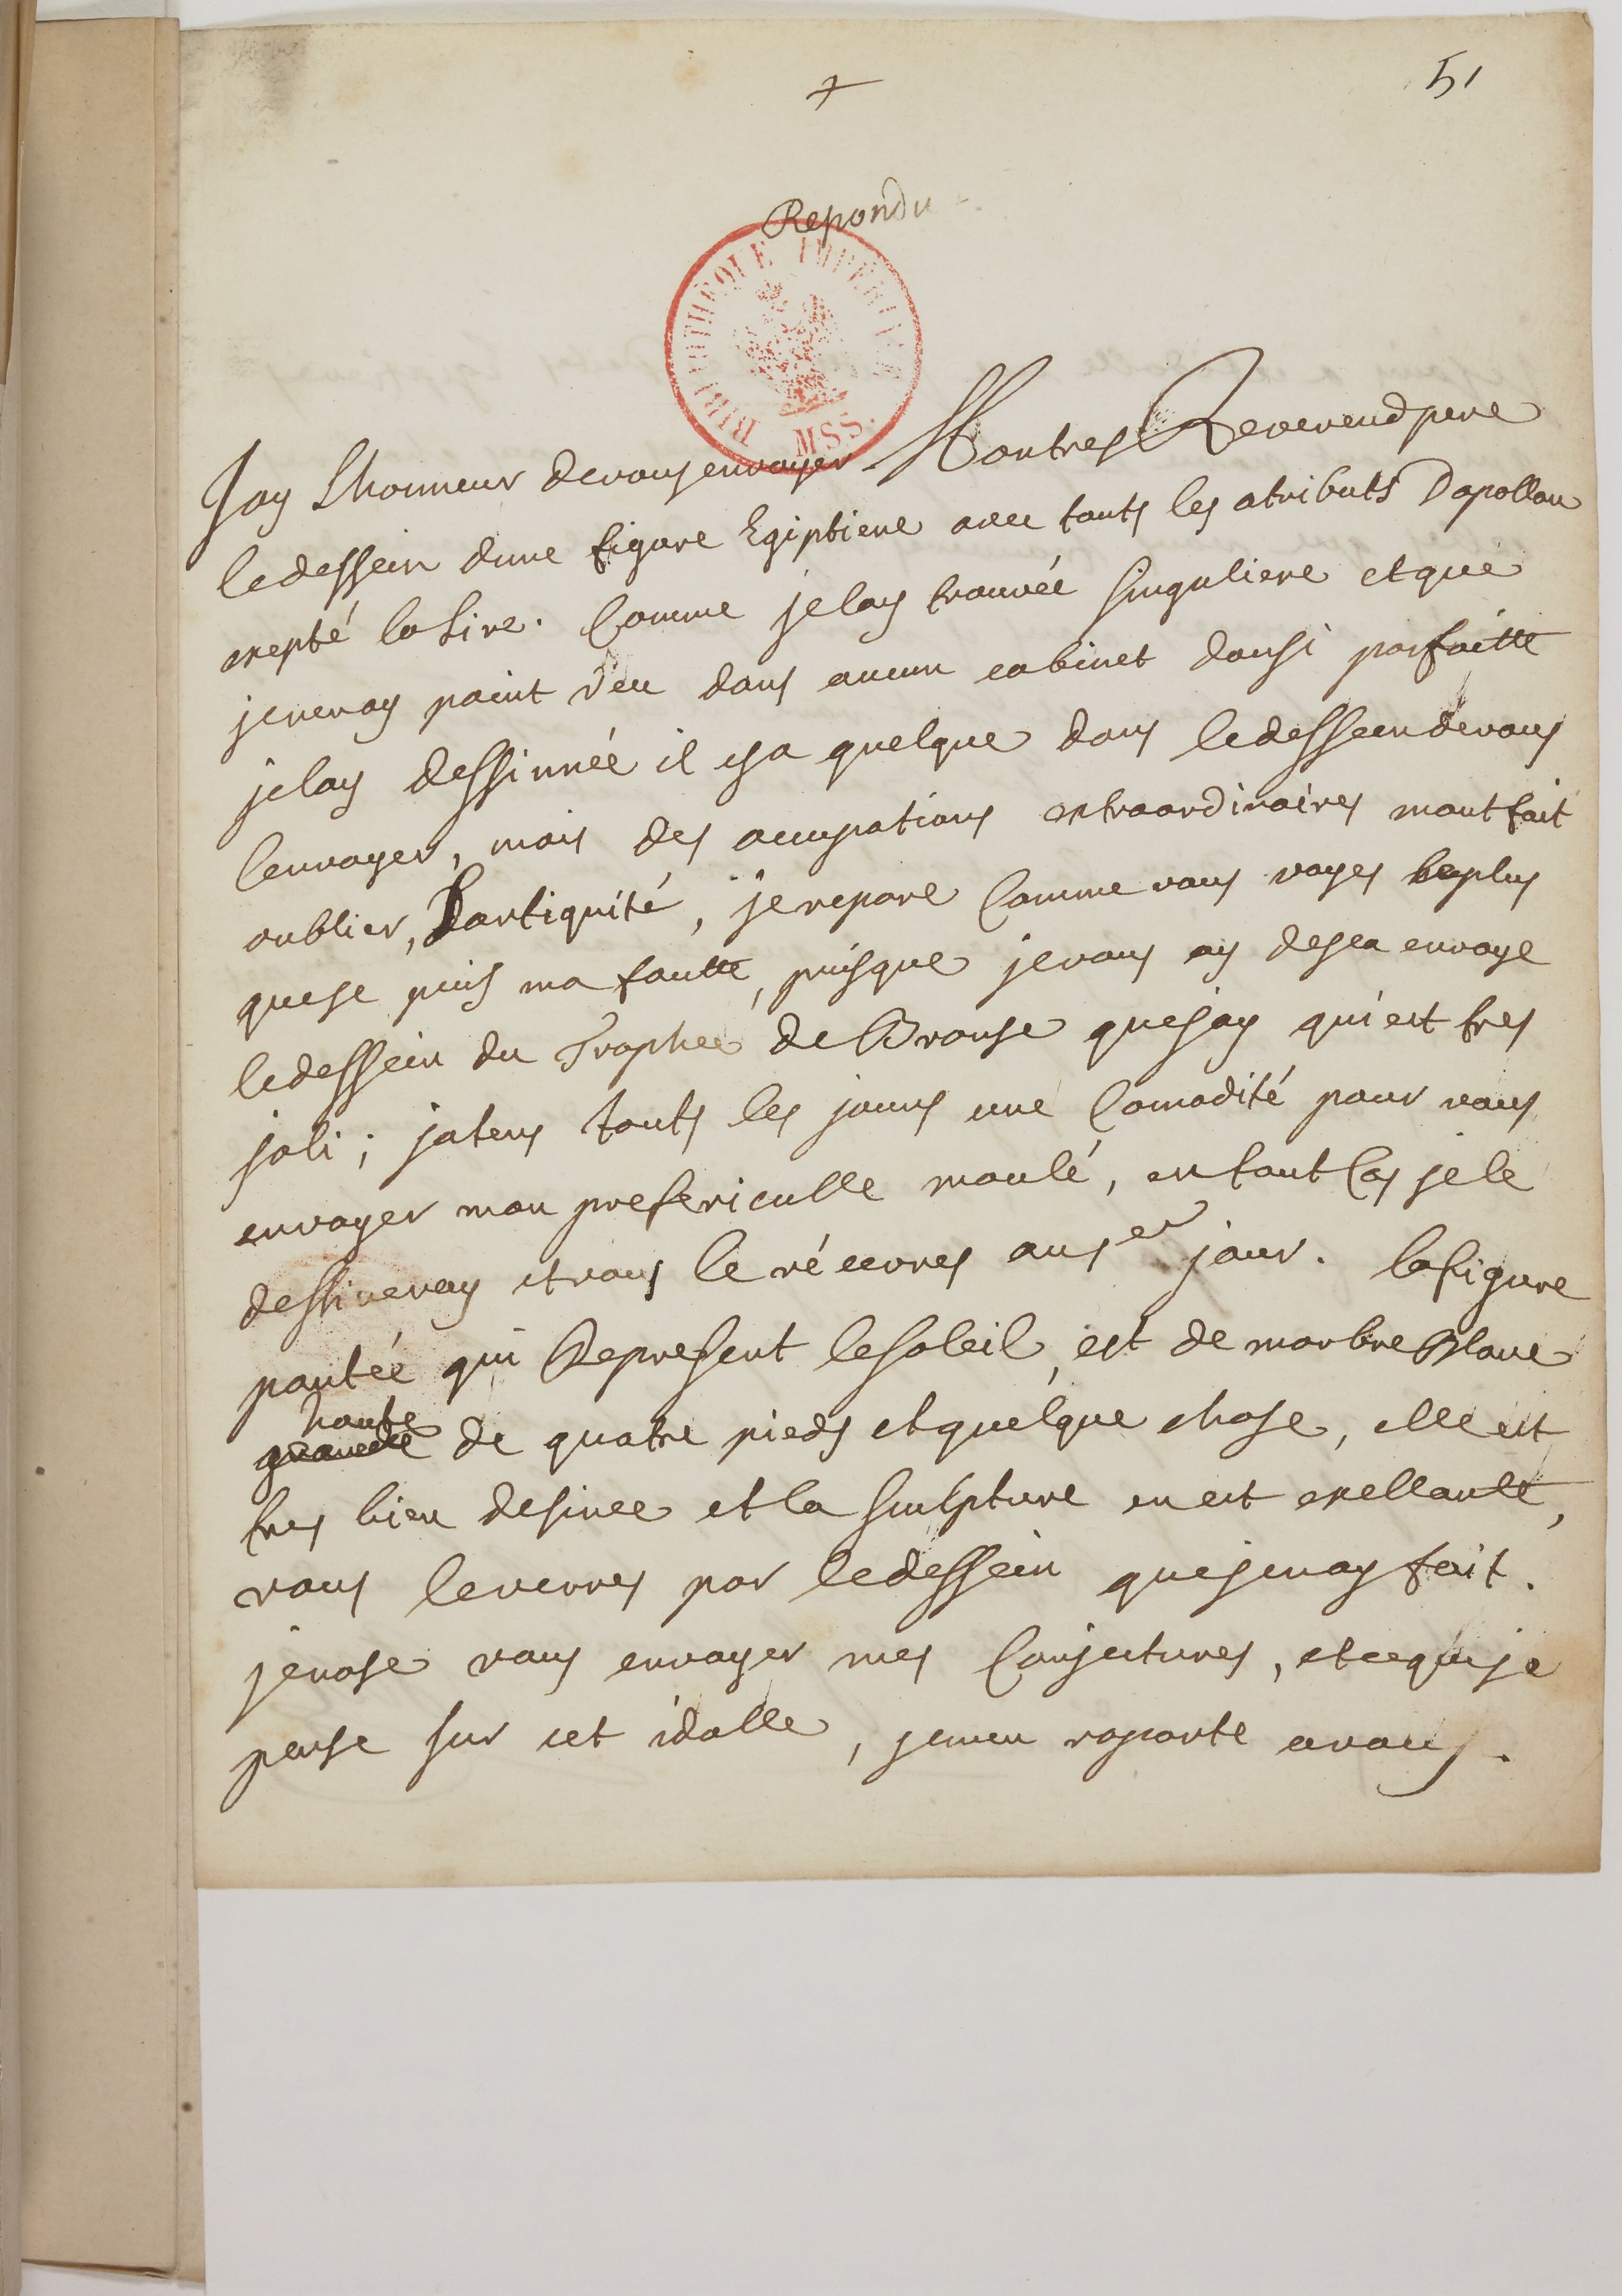 +
51
Repondu
BIBLIOTHEQUE IMPERIALE
MSS.
Jay Lhonneur devous envoyer Montres Reverend pere
ledessein dune figure Egiptiene avec touts les atributs Dapollon
exepté la Lire. Comme jelay trouvée singuliere et que
jenenay point veu dans aucun cabinet dausi parfaitte
jelay dessinnée il ya quelque dans ledessein devous
lenvoyer, mais des accupations extraordinaires mont fait
oublier, Lantiquité, je repare Comme vous voyes le plus
queje puis ma fautte, puisque jevous ay desea envoye
ledessein du Trophee de Bronse quejay qui est tres
joli; jatens touts les jours une Comodité pour vous
envoyer mon prefericulle moulé, en tout Cas je le
dessineray et vous le réceevres au 1er jour. la figure
pantée qui Represent lesoleil, est de marbre Blanc
haute
grande de quatre pieds et quelque chose, elle est
tres bien desinee et la sculpture en est exellantte,
vous leverres par ledessein que jenay fait.
jenose vous envoyer mes Conjectures, et ceque je
pense sur cet idolle, jemen raporte avous.